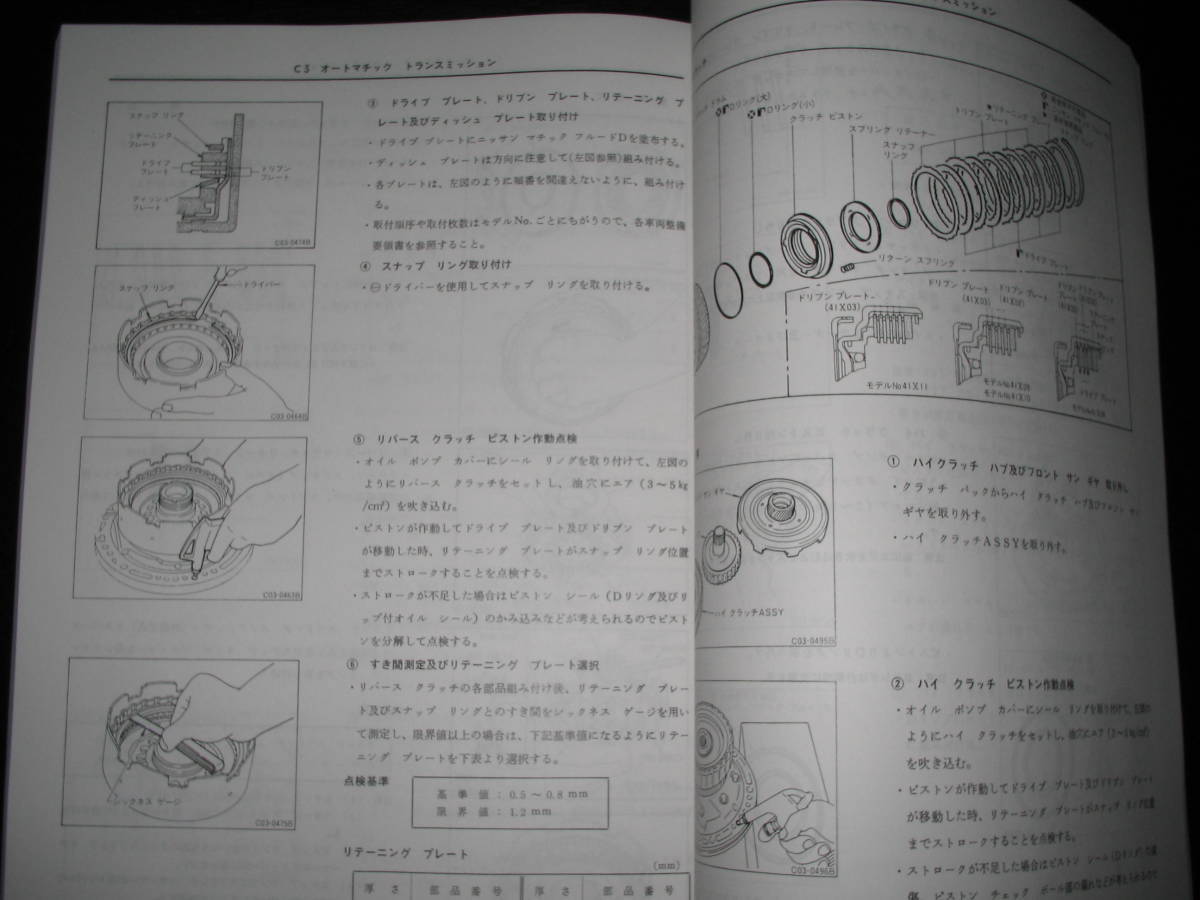 C3 オートマチック トランスミッション
スナップ リング
リテーニング
プレート
ドライブ
プレート
ドリブン
プレート
ディッシュ
プレート
C03-0474B
③ ドライブ プレート、ドリブン プレート、リテーニング プ
レート及びディッシュ プレート取り付け
・ドライブ プレートにニッサン マチック フルードDを塗布する。
・ディッシュ プレートは方向に注意して(左図参照)組み付ける。
・各プレートは、左図のように順番を間違えないように、組み付け
る。
・取付順序や取付枚数はモデルNo.ごとにちがうので、各車両整備
要領書を参照すること。
スナップ リング
ドライバー
C03-0464B
④ スナップ リング取り付け
・⊖ドライバーを使用してスナップ リングを取り付ける。
C03-0463B
⑤ リバース クラッチ ピストン作動点検
・オイル ポンプ カバーにシール リングを取り付けて、左図の
ようにリバース クラッチをセットし、油穴にエア(3〜5kg
/cm²)を吹き込む。
・ピストンが作動してドライブ プレート及びドリブン プレート
が移動した時、リテーニング プレートがスナップ リング位置
までストロークすることを点検する。
・ストロークが不足した場合はピストン シール(Dリング及びリ
ップ付オイル シール)のかみ込みなどが考えられるのでピスト
ンを分解して点検する。
シックネス ゲージ
C03-0475B
⑥ すき間測定及びリテーニング プレート選択
・リバース クラッチの各部品組み付け後、リテーニング プレー
ト及びスナップ リングとのすき間をシックネス ゲージを用い
て測定し、限界値以上の場合は、下記基準値になるようにリテー
ニング プレートを下表より選択する。
点検基準
基準値：0.5〜0.8mm
限界値：1.2mm
リテーニング プレート
(mm)
厚さ 部品番号 厚さ 部品番号
ドラム
Dリング(大)
Dリング(小)
クラッチ ピストン
スプリング リテーナー
スナップ
リング
ドリブン プレート
★リテーニング プレート
リターン スプリング
ドライブ プレート
ドリブン プレート
(41X03)
モデルNo41X11
ドリブン プレート
(41X03)
ドリブン プレート
ドライブ プレート
サン ギヤ
ハイ クラッチASSY
C03-0495B
① ハイクラッチ ハブ及びフロント サン ギヤ 取り外し
・クラッチ パックからハイ クラッチ ハブ及びフロント サン
ギヤを取り外す。
・ハイ クラッチASSYを取り外す。
C03-0496B
② ハイ クラッチ ピストン作動点検
・オイル ポンプ カバーにシール リングを取り付けて、左図の
ようにハイ クラッチをセットし、油穴にエア(3〜5kg/cm²)
を吹き込む。
・ピストンが作動してドライブ プレート及びドリブン プレート
が移動した時、リテーニング プレートがスナップ リング位置
までストロークすることを点検する。
・ストロークが不足した場合はピストン シール(Dリング)の損
傷、ピストン チェック ボール部の漏れなどが考えられるので